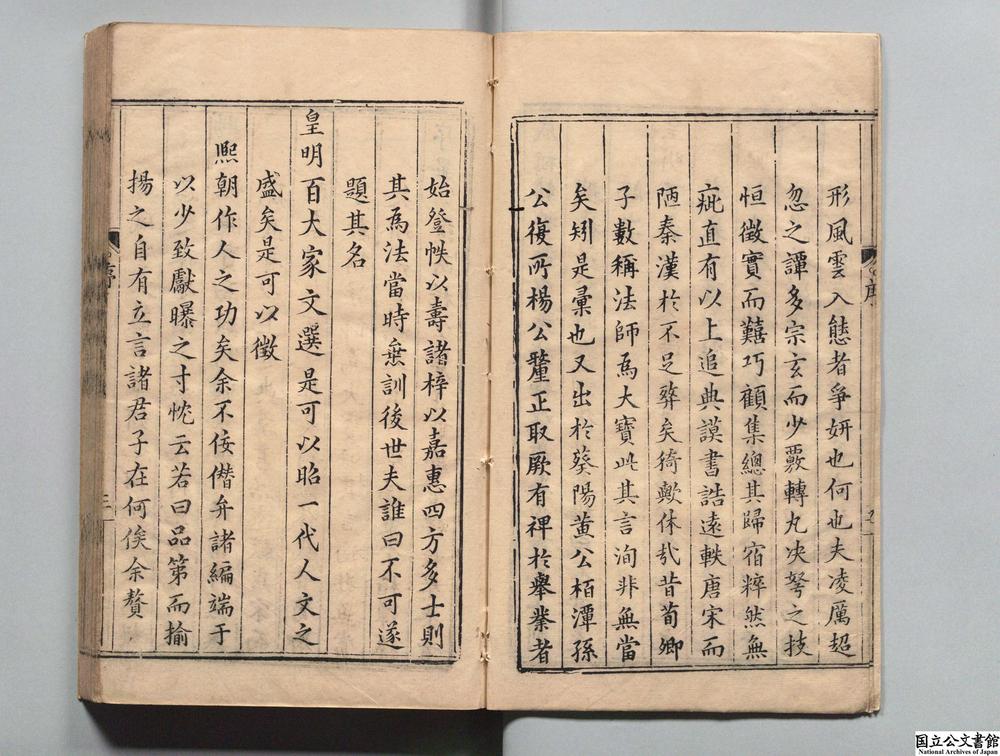 形風雲入態者爭妍也何也夫凌厲超
忽之譚多宗玄而少覈轉丸決弩之技
恒徵實而囏巧顧集總其歸宿粹然無
疵直有以上追典謨書誥遠軼唐宋而
陋秦漢於不足彛矣猗歟休哉昔荀卿
子數稱法師為大寶此其言洵非無當
矣矧是彙也又出於葵陽黃公栢潭孫
公復所楊公釐正取厥有裨於舉業者
始登帙以壽諸梓以嘉惠四方多士則
其為法當時垂訓後世夫誰曰不可遂
題其名
皇明百大家文選是可以昭一代人文之
盛矣是可以徵
熙朝作人之功矣余不佞僣弁諸編端于
以少致獻曝之寸忱云若曰品第而揄
揚之自有立言諸君子在何俟余贅
序
序
三
国立公文書館
National Archives of Japan